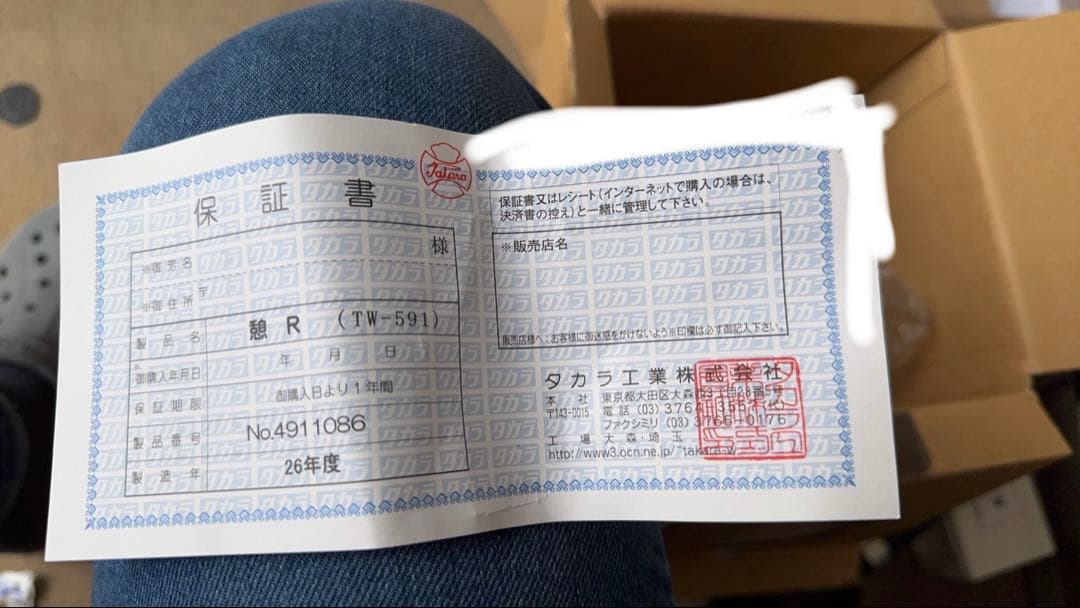 保証書
Tatara
※御芳名 様
※御住所 〒
製品名 憩 R (TW-591)
※御購入年月日 年 月 日
保証期限 御購入日より1年間
製品番号 No.4911086
製造年 26年度
保証書又はレシート(インターネットで購入の場合は、
決済書の控え)と一緒に管理して下さい。
※販売店名
販売店様へ:お客様に御迷惑をかけないよう※印欄は必ず御記入下さい。
タカラ工業株式会社
本社 東京都大田区大森西3丁目28番5号
〒143-0015 電話 (03) 376
ファクシミリ (03) 3766-0176
工場 大森・埼玉
http://www3.ocn.ne.jp/~takara-w